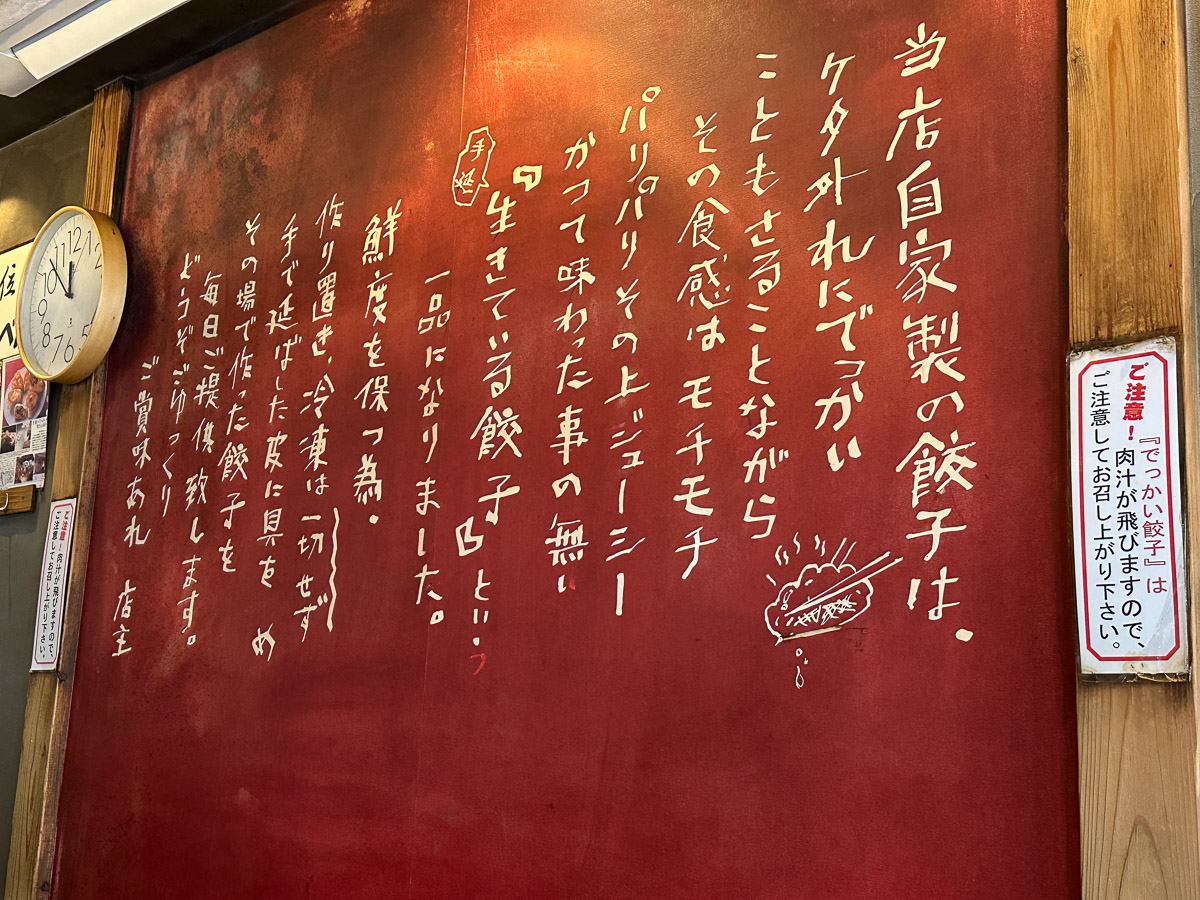 当店自家製の餃子は、
ケタ外れにでっかい
こともさることながら
その食感は モチモチ
パリパリその上ジューシー
かつて味わった事の無い
『生きている餃子』という
手延
一品になりました。
鮮度を保つ為、
作り置き、冷凍は一切せず
手で延ばした皮に具をめ
その場で作った餃子を
毎日ご提供致します。
どーつぞごゆっくり
ご賞味あれ 店主
ご注意!
『でっかい餃子』は
肉汁が飛びますので、
ご注意してお召し上がり下さい。
ご注意!肉汁が飛びますので、
ご注意してお召し上がり下さい。
12
1
2
5
6
7
8
9
10
11